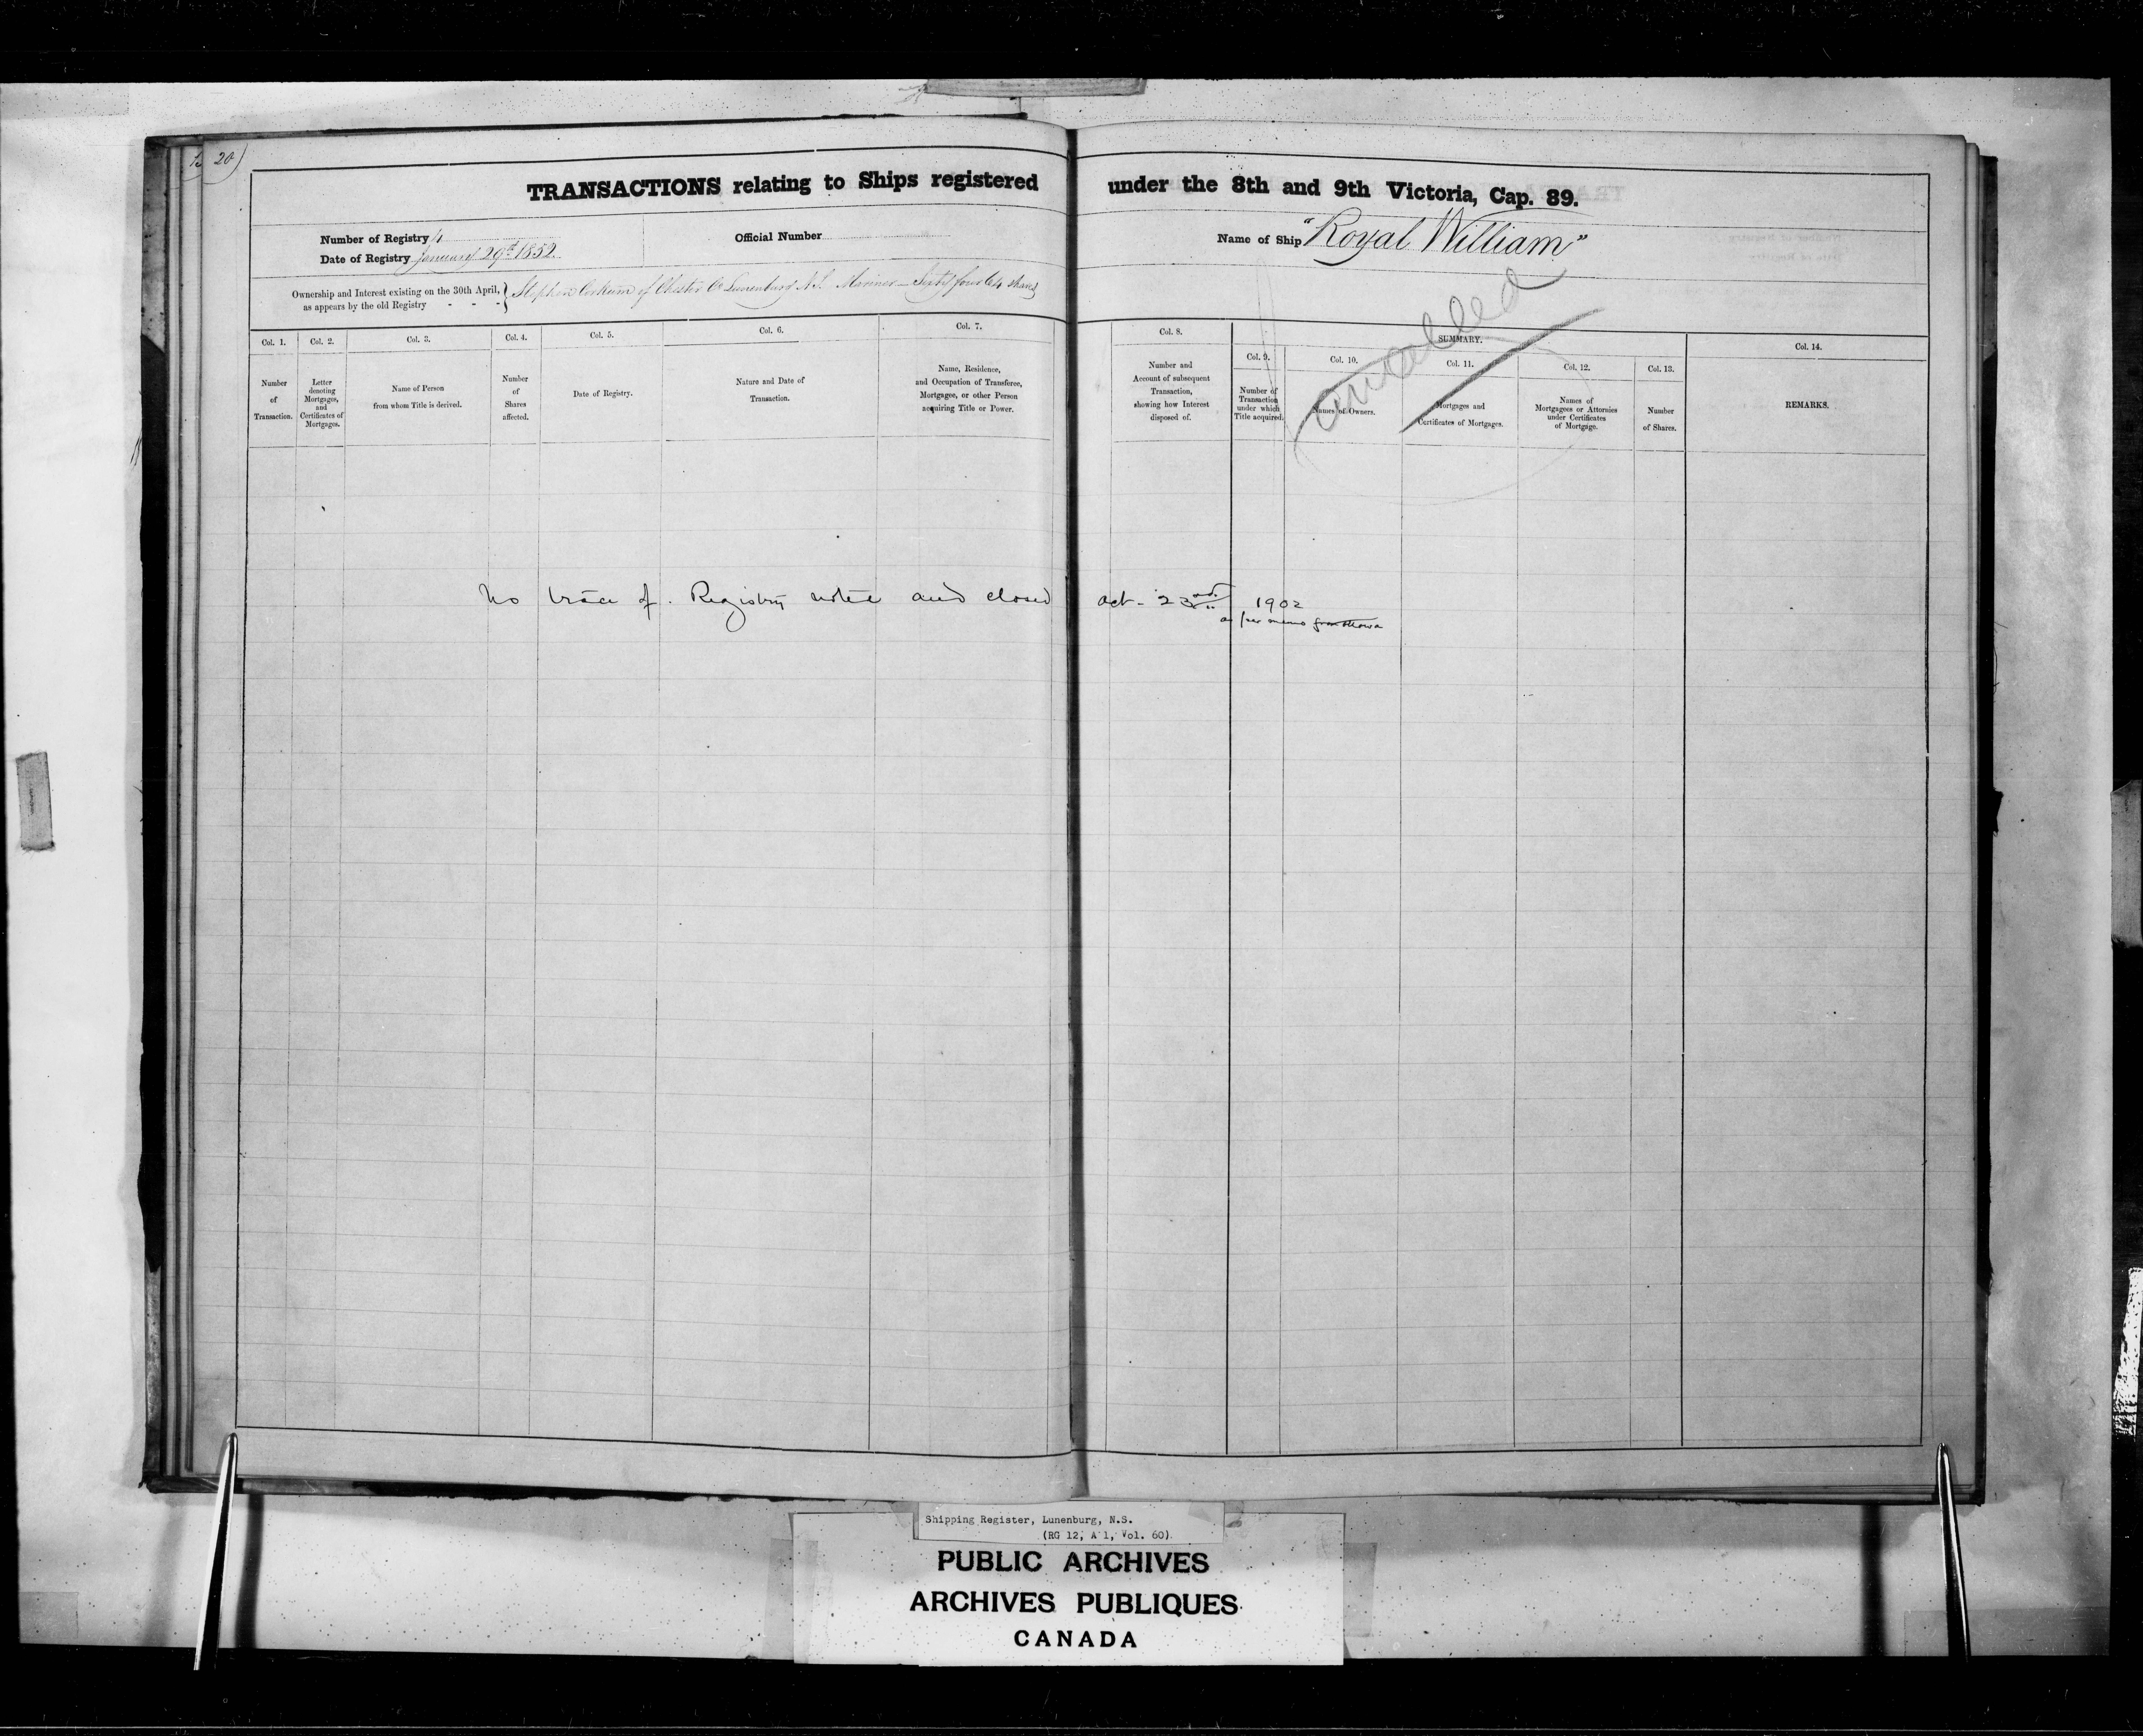 20)
TRANSACTIONS relating to Ships registered under the 8th and 9th Victoria, Cap. 89.
Number of Registry 4
Date of Registry January 29th 1852.
Official Number
Name of Ship "Royal William"
Ownership and Interest existing on the 30th April,
as appears by the old Registry - - -
Stephen Corkum of Chester Co Lunenburg N.S. Mariner — Sixty four 64 shares
Cancelled
Col. 1.
Number
of
Transaction.
Col. 2.
Letter
denoting
Mortgages,
and
Certificates of
Mortgages.
Col. 3.
Name of Person
from whom Title is derived.
Col. 4.
Number
of
Shares
affected.
Col. 5.
Date of Registry.
Col. 6.
Nature and Date of
Transaction.
Col. 7.
Name, Residence,
and Occupation of Transferee,
Mortgagee, or other Person
acquiring Title or Power.
Col. 8.
Number and
Account of subsequent
Transaction,
showing how Interest
disposed of.
SUMMARY.
Col. 9.
Number of
Transaction
under which
Title acquired.
Col. 10.
Names of Owners.
Col. 11.
Mortgages and
Certificates of Mortgages.
Col. 12.
Names of
Mortgagees or Attornies
under Certificates
of Mortgage.
Col. 13.
Number
of Shares.
Col. 14.
REMARKS.
No trace of Registry noted and closed Oct. 23 1902
as per memo from Ottawa
Shipping Register, Lunenburg, N.S.
(RG 12, A 1, Vol. 60)
PUBLIC ARCHIVES
ARCHIVES PUBLIQUES
CANADA